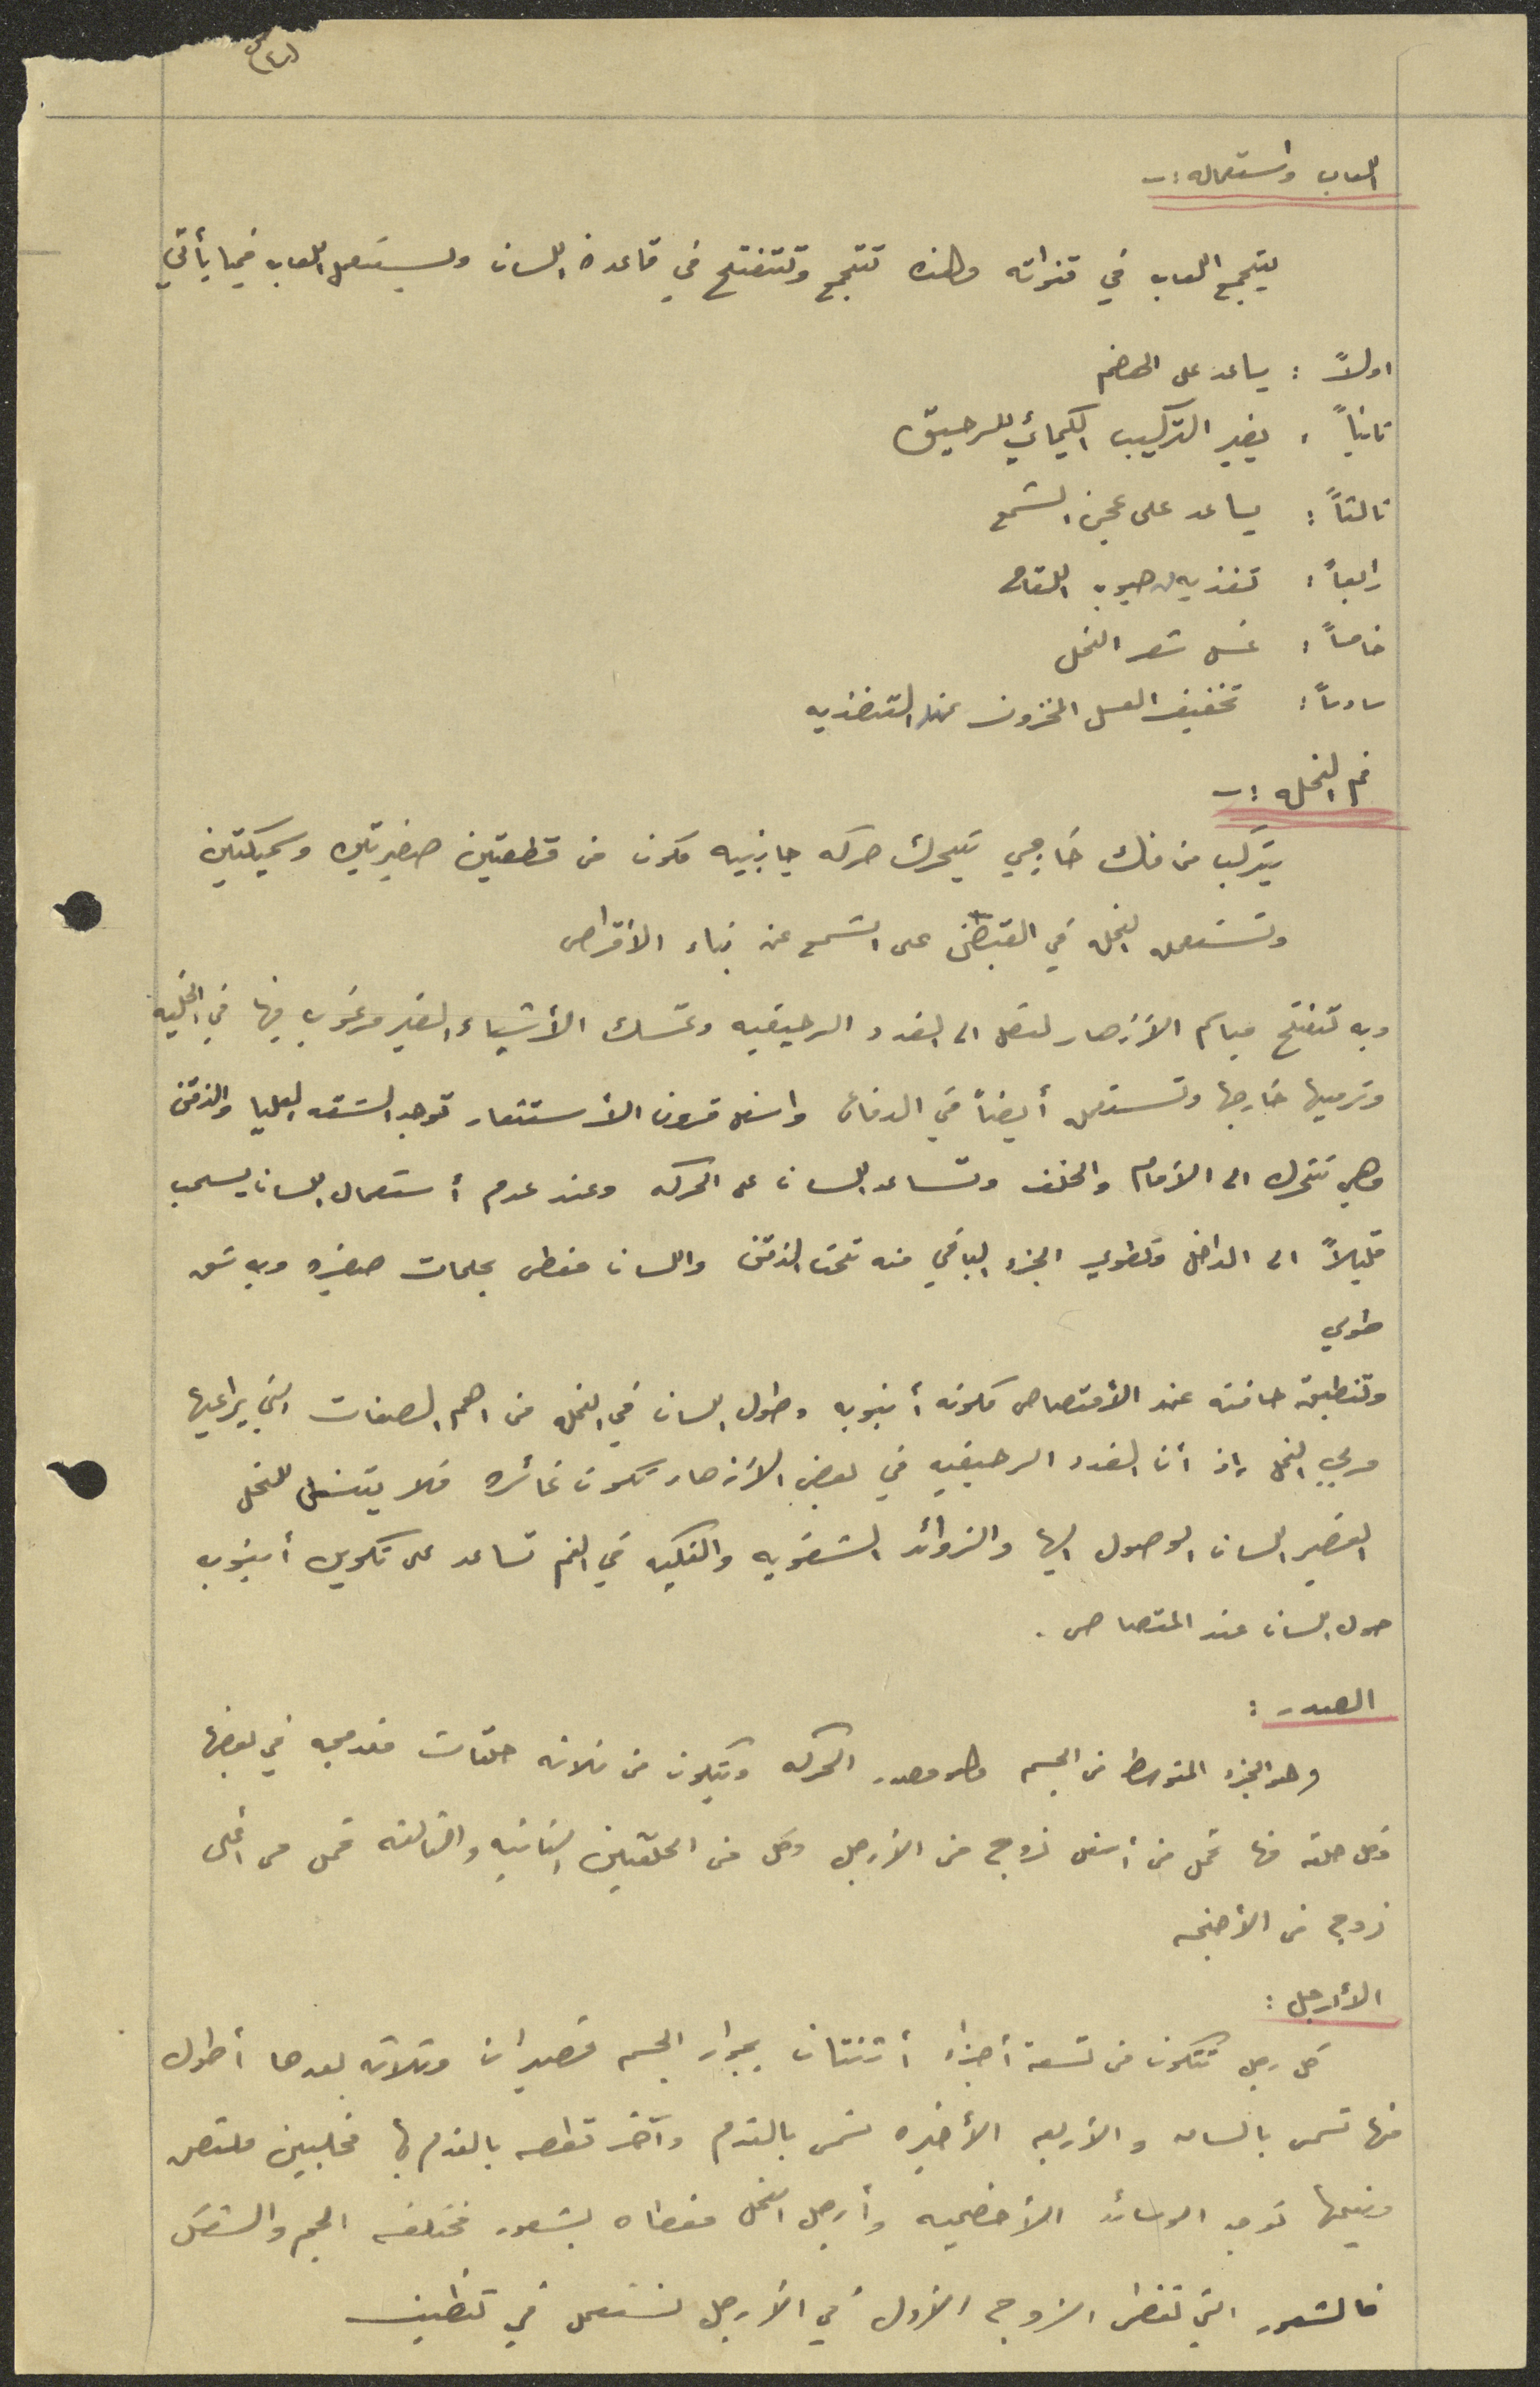 اللعاب واستعماله :-
يتجمع اللعاب في قنواته وهذه تتجمع وتتفتح في قاعدة اللسان ويستعمل اللعاب فيما يأتي
اولاً : يساعد على الهضم
ثانياً : يغير التركيب الكيمائي للرحيق
ثالثاً : يساعد على عجن الشمع
رابعاً : تغذيه حبوب اللقاح
خامساً : غسل شعر النحل
سادساً : تخفيف العسل المخزون عند التغذيه
فم النحله :-
يتركب من فك خارجي يتحرك حركه جانبيه مكون من قطعتين صغيرتين وسميكتين
وتستعمله النحله في القبض على الشمع عند بناء الأقراص
وبه تفتح مياسم الأزهار لتصل الى الغدد الرحيقيه وتمسك الأشياء الغير مرغوب فيها في الخليه
وترميها خارجها وتستعمله أيضاً في الدفاع واسفل قرون الأستشعار توجد الشفه العليا والذقن
وهي تتحرك الى الأمام والخلف وتساعد اللسان على الحركه وعند عدم أستعمال اللسان يسحب
قليلاً الى الداخل ويطوى الجزء الباقي منه تحت الذقن واللسان مغطى بحلمات صغيره وبه شق
طولي
وتنطبق حافته عند الأمتصاص مكونه أنبوبه وطول اللسان في النحله من اهم الصفات التي يراعيها
مربي النحل إذ أن الغدد الرحيقيه في بعض الأزهار تكون غائره فلا يتسنى للنحل
القصير اللسان الوصول اليها والزوائد الشفويه والفكيه في الفم تساعد على تكوين أنبوب
حول اللسان عند المتصاص .
الصدر :
وهو الجزء المتوسط من الجسم وهو مصدر الحركه ويتكون من ثلاثه حلقات مندمجه في بعضها
وكل حلقه منها تحمل من أسفل زوج من الأرجل وكل من الحلقتين الثانيه والثالثه تحمل من أعلى
زوج من الأجنحه
الأرجل :
كل رجل تتكون من تسعة أجزاء أثنتان بجوار الجسم قصيران وثلاثه بعدها أطول
منها تسمى بالساق والأربعه الأخيره تسمى بالقدم وآخر قطعه بالقدم بها مخلبين ملتصق
وبينها توجد الوسائد الأخصيه وأرجل النحل مغطاه بشعور مختلفه الحجم والشكل
فالشعور التي تغطى الزوج الأول في الأرجل تستعمل في تنظيف